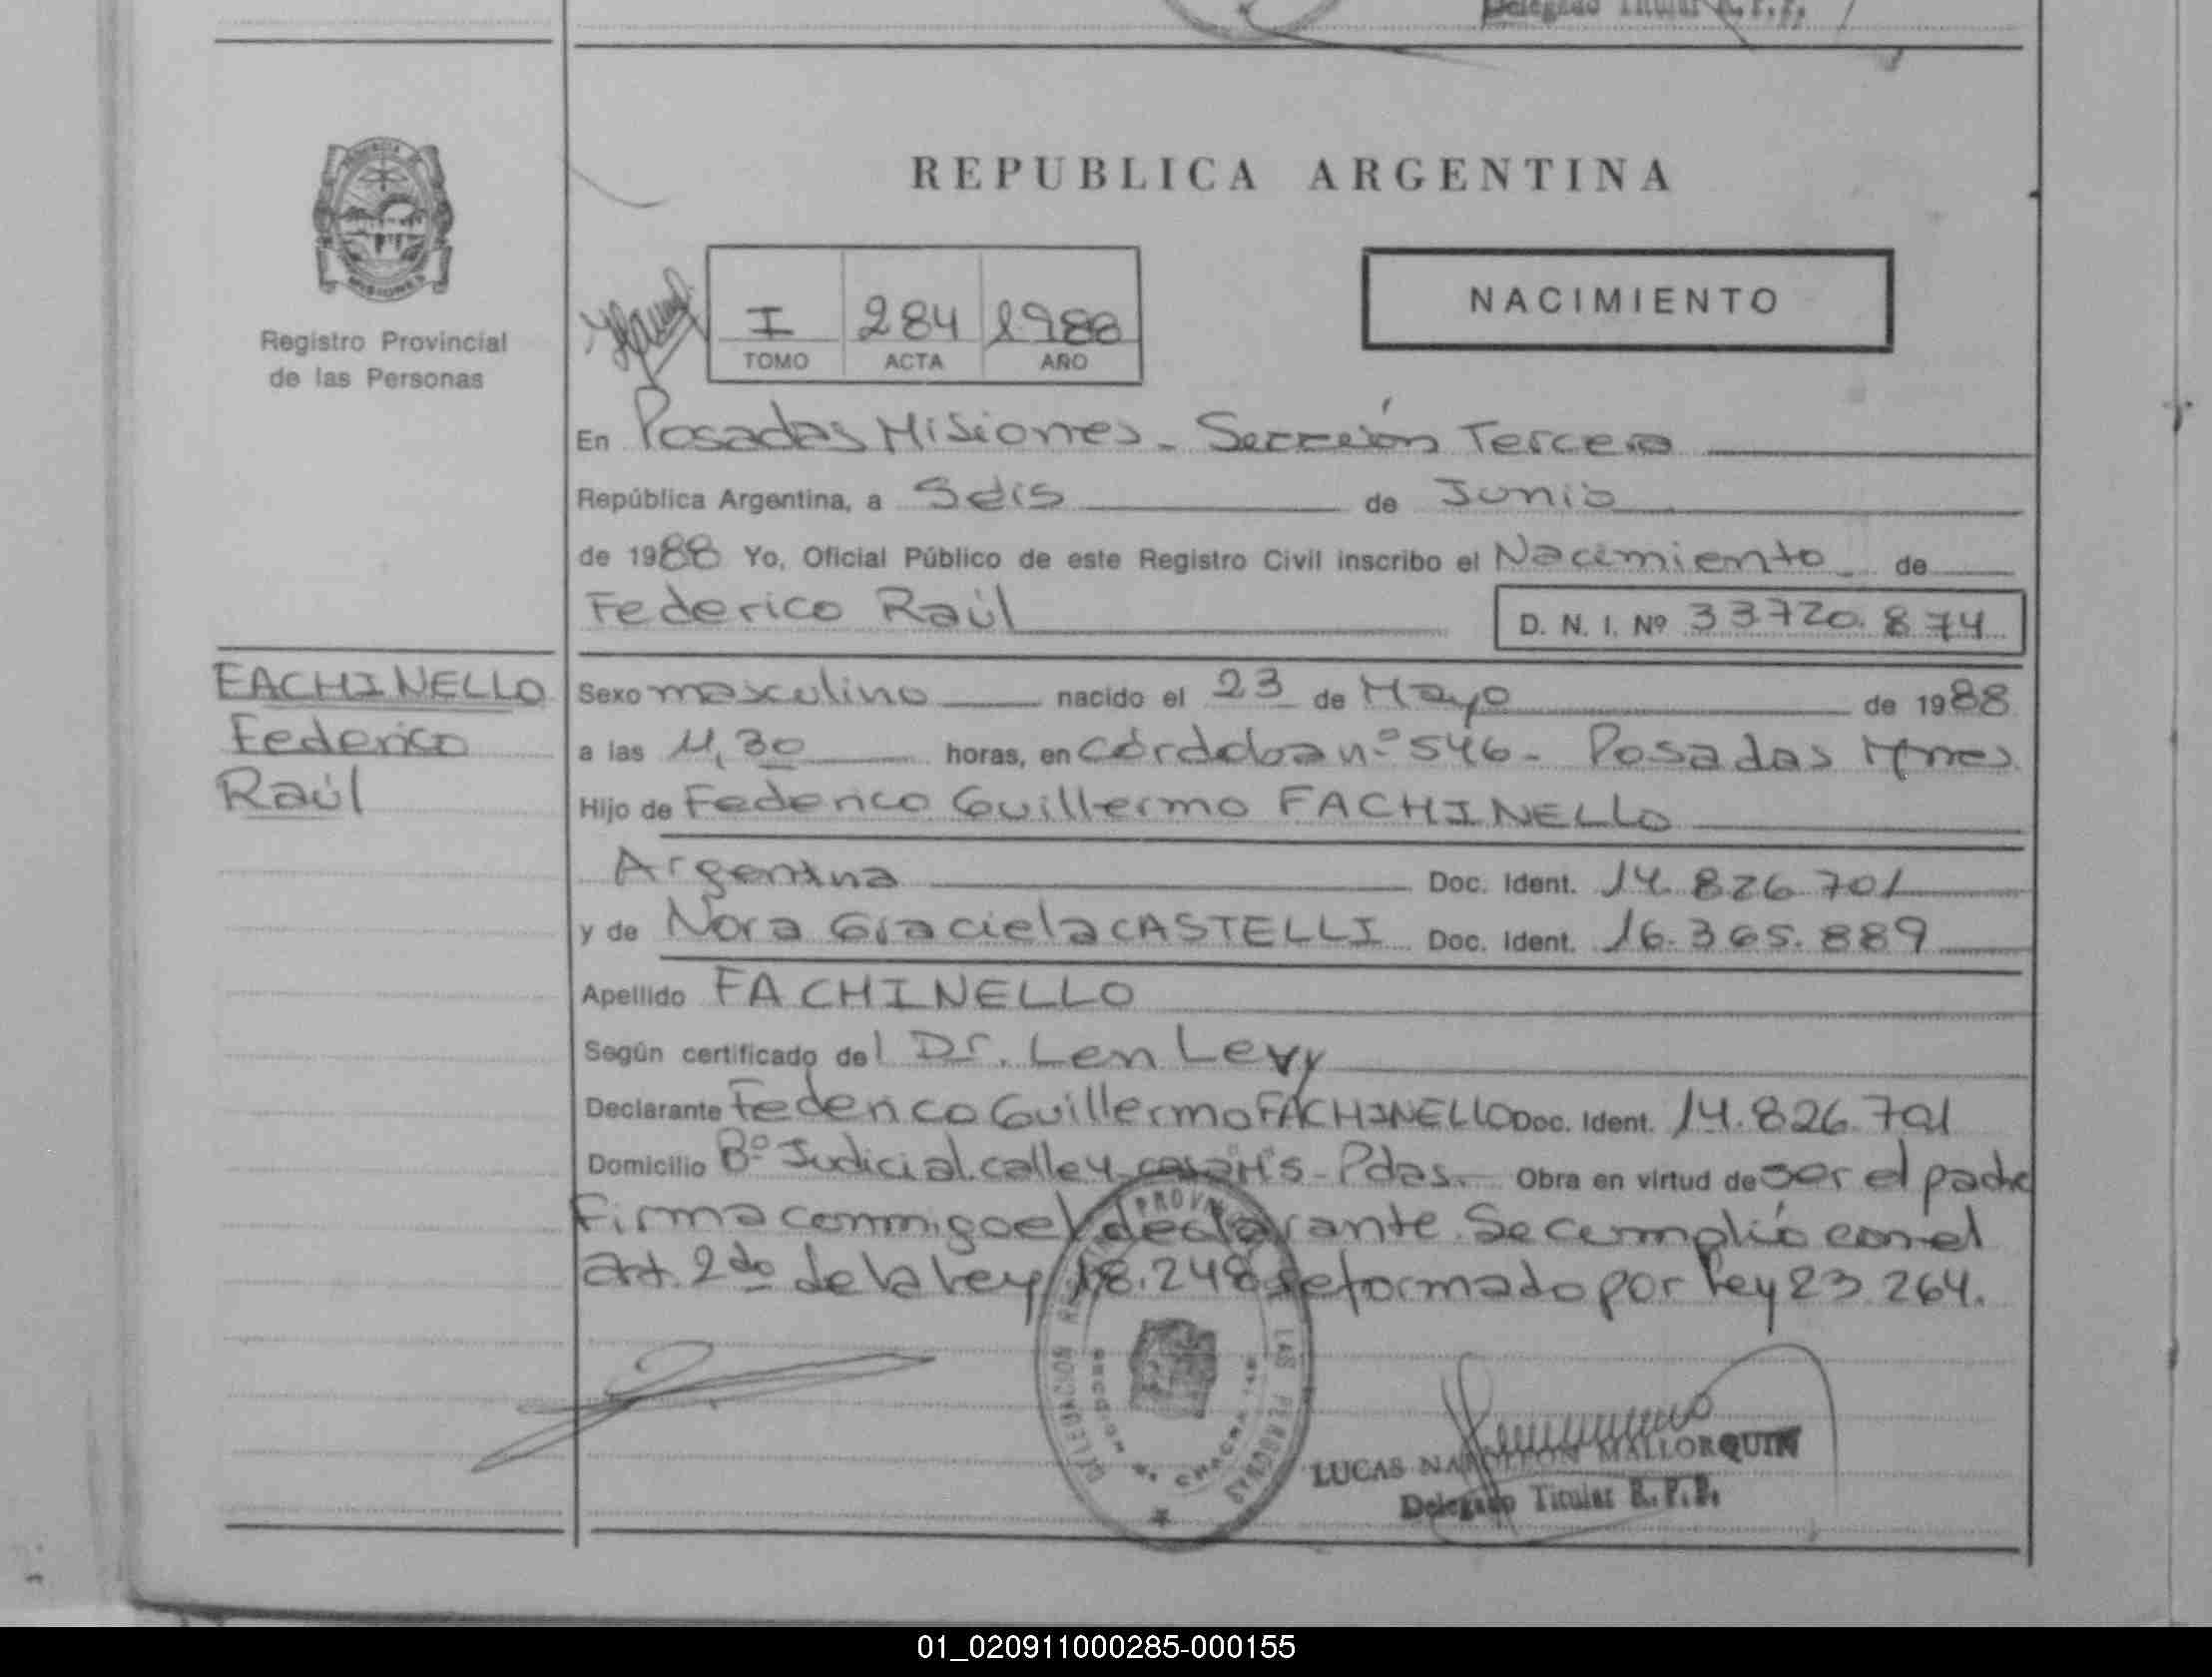 Delegado Titular R.P.P.
REPUBLICA ARGENTINA
PROVINCIA DE
MISIONES
Registro Provincial
de las Personas
I 284 1988
TOMO ACTA AÑO
NACIMIENTO
En Posadas Misiones - Sección Tercera
República Argentina, a Seis de Junio
de 1988 Yo, Oficial Público de este Registro Civil inscribo el Nacimiento de
Federico Raúl D. N. I. Nº 33720.874
FACHINELLO
Federico
Raúl
Sexo masculino nacido el 23 de Mayo de 1988
a las 11,30 horas, en Córdoba nº 546 - Posadas Mnes
Hijo de Federico Guillermo FACHINELLO
Argentina Doc. Ident. 14.826.701
y de Nora Graciela CASTELLI Doc. Ident. 16.365.889
Apellido FACHINELLO
Según certificado del Dr. Len Levy
Declarante Federico Guillermo FACHINELLO Doc. Ident. 14.826.701
Domicilio Bº Judicial calle 4 - Pdas. Obra en virtud de ser el padre
Firma conmigo el declarante. Se cumplió con el
art. 2do de la Ley 18.248 reformado por Ley 23.264.
LAS PERSONAS
LUCAS NAPOLEON MALLORQUIN
Delegado Titular R.P.P.
01_020911000285-000155